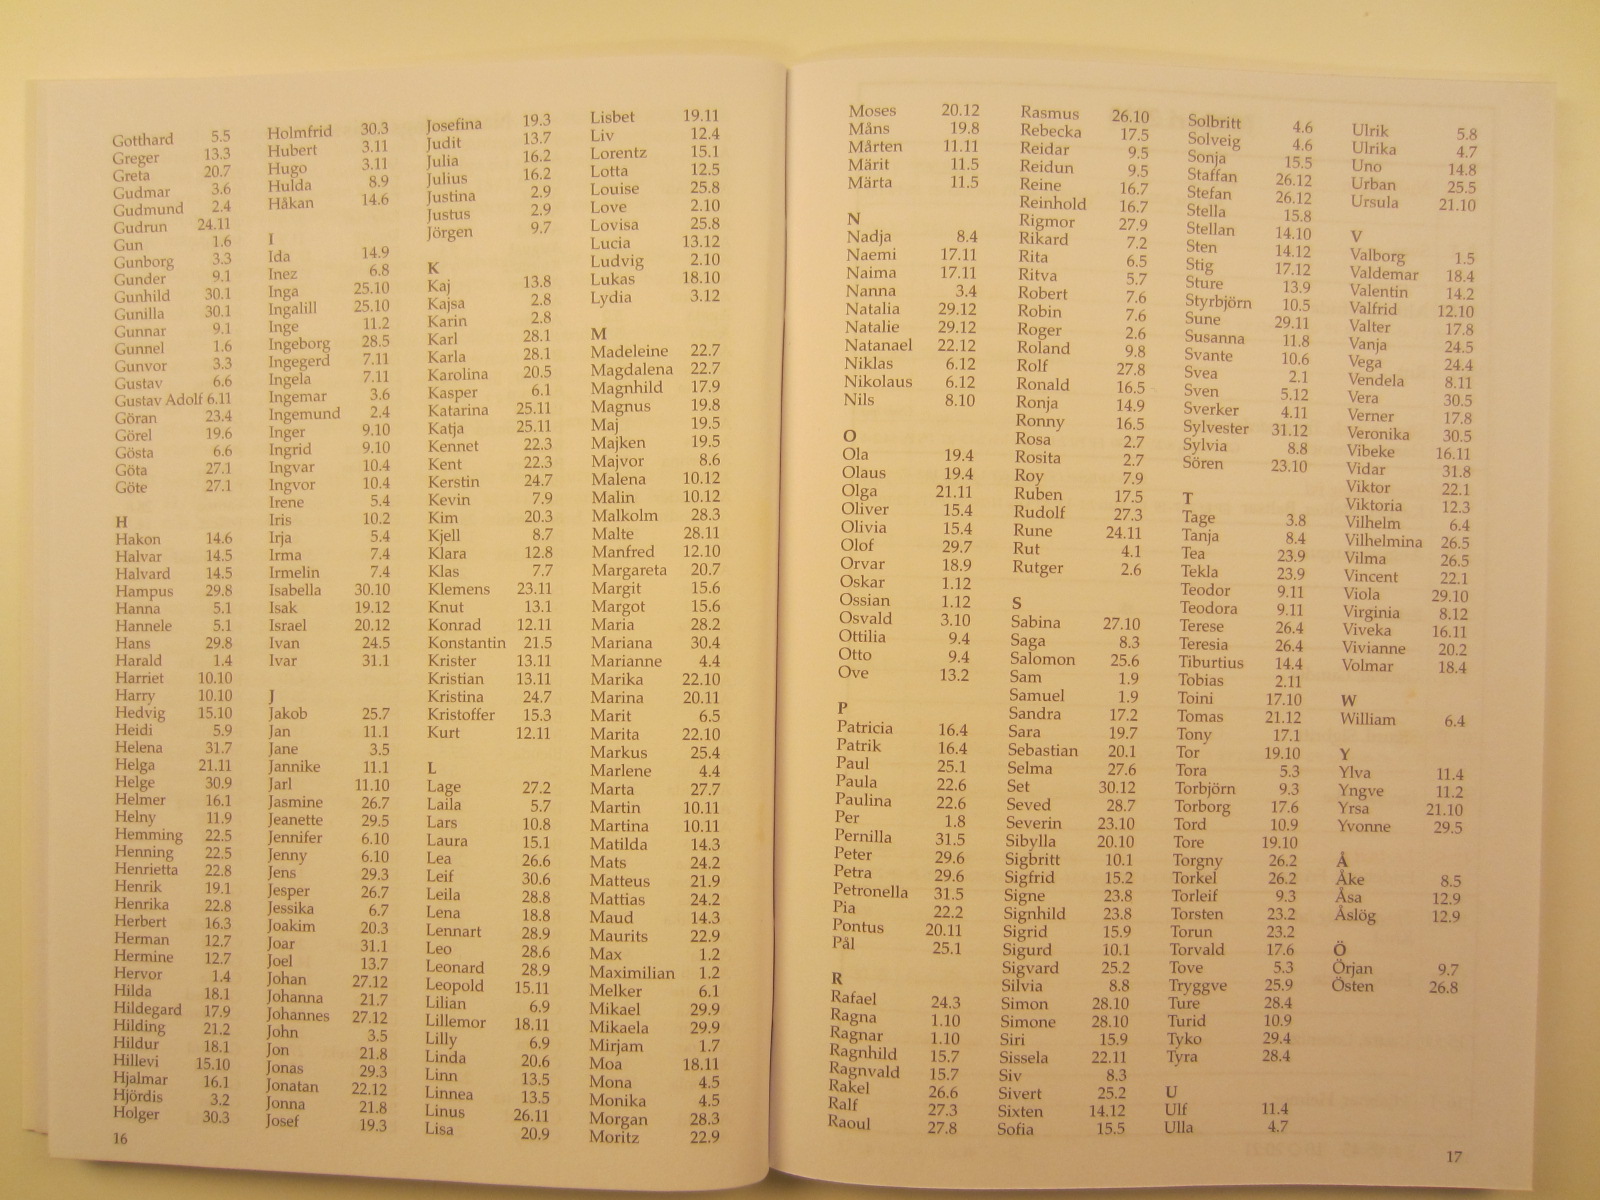 Gotthard 5.5
Greger 13.3
Greta 20.7
Gudmar 3.6
Gudmund 2.4
Gudrun 24.11
Gun 1.6
Gunborg 3.3
Gunder 9.1
Gunhild 30.1
Gunilla 30.1
Gunnar 9.1
Gunnel 1.6
Gunvor 3.3
Gustav 6.6
Gustav Adolf 6.11
Göran 23.4
Görel 19.6
Gösta 6.6
Göta 27.1
Göte 27.1
H
Hakon 14.6
Halvar 14.5
Halvard 14.5
Hampus 29.8
Hanna 5.1
Hannele 5.1
Hans 29.8
Harald 1.4
Harriet 10.10
Harry 10.10
Hedvig 15.10
Heidi 5.9
Helena 31.7
Helga 21.11
Helge 30.9
Helmer 16.1
Helny 11.9
Hemming 22.5
Henning 22.5
Henrietta 22.8
Henrik 19.1
Henrika 22.8
Herbert 16.3
Herman 12.7
Hermine 12.7
Hervor 1.4
Hilda 18.1
Hildegard 17.9
Hilding 21.2
Hildur 18.1
Hillevi 15.10
Hjalmar 16.1
Hjördis 3.2
Holger 30.3
Holmfrid 30.3
Hubert 3.11
Hugo 3.11
Hulda 8.9
Håkan 14.6
I
Ida 14.9
Inez 6.8
Inga 25.10
Ingalill 25.10
Inge 11.2
Ingeborg 28.5
Ingegerd 7.11
Ingela 7.11
Ingemar 3.6
Ingemund 2.4
Inger 9.10
Ingrid 9.10
Ingvar 10.4
Ingvor 10.4
Irene 5.4
Iris 10.2
Irja 5.4
Irma 7.4
Irmelin 7.4
Isabella 30.10
Isak 19.12
Israel 20.12
Ivan 24.5
Ivar 31.1
J
Jakob 25.7
Jan 11.1
Jane 3.5
Jannike 11.1
Jarl 11.10
Jasmine 26.7
Jeanette 29.5
Jennifer 6.10
Jenny 6.10
Jens 29.3
Jesper 26.7
Jessika 6.7
Joakim 20.3
Joar 31.1
Joel 13.7
Johan 27.12
Johanna 21.7
Johannes 27.12
John 3.5
Jon 21.8
Jonas 29.3
Jonatan 22.12
Jonna 21.8
Josef 19.3
Josefina 19.3
Judit 13.7
Julia 16.2
Julius 16.2
Justina 2.9
Justus 2.9
Jörgen 9.7
K
Kaj 13.8
Kajsa 2.8
Karin 2.8
Karl 28.1
Karla 28.1
Karolina 20.5
Kasper 6.1
Katarina 25.11
Katja 25.11
Kennet 22.3
Kent 22.3
Kerstin 24.7
Kevin 7.9
Kim 20.3
Kjell 8.7
Klara 12.8
Klas 7.7
Klemens 23.11
Knut 13.1
Konrad 12.11
Konstantin 21.5
Krister 13.11
Kristian 13.11
Kristina 24.7
Kristoffer 15.3
Kurt 12.11
L
Lage 27.2
Laila 5.7
Lars 10.8
Laura 15.1
Lea 26.6
Leif 30.6
Leila 28.8
Lena 18.8
Lennart 28.9
Leo 28.6
Leonard 28.9
Leopold 15.11
Lilian 6.9
Lillemor 18.11
Lilly 6.9
Linda 20.6
Linn 13.5
Linnea 13.5
Linus 26.11
Lisa 20.9
Lisbet 19.11
Liv 12.4
Lorentz 15.1
Lotta 12.5
Louise 25.8
Love 2.10
Lovisa 25.8
Lucia 13.12
Ludvig 2.10
Lukas 18.10
Lydia 3.12
M
Madeleine 22.7
Magdalena 22.7
Magnhild 17.9
Magnus 19.8
Maj 19.5
Majken 19.5
Majvor 8.6
Malena 10.12
Malin 10.12
Malkolm 28.3
Malte 28.11
Manfred 12.10
Margareta 20.7
Margit 15.6
Margot 15.6
Maria 28.2
Mariana 30.4
Marianne 4.4
Marika 22.10
Marina 20.11
Marit 6.5
Marita 22.10
Markus 25.4
Marlene 4.4
Marta 27.7
Martin 10.11
Martina 10.11
Matilda 14.3
Mats 24.2
Matteus 21.9
Mattias 24.2
Maud 14.3
Maurits 22.9
Max 1.2
Maximilian 1.2
Melker 6.1
Mikael 29.9
Mikaela 29.9
Mirjam 1.7
Moa 18.11
Mona 4.5
Monika 4.5
Morgan 28.3
Moritz 22.9
16
Moses 20.12
Måns 19.8
Mårten 11.11
Märit 11.5
Märta 11.5
N
Nadja 8.4
Naemi 17.11
Naima 17.11
Nanna 3.4
Natalia 29.12
Natalie 29.12
Natanael 22.12
Niklas 6.12
Nikolaus 6.12
Nils 8.10
O
Ola 19.4
Olaus 19.4
Olga 21.11
Oliver 15.4
Olivia 15.4
Olof 29.7
Orvar 18.9
Oskar 1.12
Ossian 1.12
Osvald 3.10
Ottilia 9.4
Otto 9.4
Ove 13.2
P
Patricia 16.4
Patrik 16.4
Paul 25.1
Paula 22.6
Paulina 22.6
Per 1.8
Pernilla 31.5
Peter 29.6
Petra 29.6
Petronella 31.5
Pia 22.2
Pontus 20.11
Pål 25.1
R
Rafael 24.3
Ragna 1.10
Ragnar 1.10
Ragnhild 15.7
Ragnvald 15.7
Rakel 26.6
Ralf 27.3
Raoul 27.8
Rasmus 26.10
Rebecka 17.5
Reidar 9.5
Reidun 9.5
Reine 16.7
Reinhold 16.7
Rigmor 27.9
Rikard 7.2
Rita 6.5
Ritva 5.7
Robert 7.6
Robin 7.6
Roger 2.6
Roland 9.8
Rolf 27.8
Ronald 16.5
Ronja 14.9
Ronny 16.5
Rosa 2.7
Rosita 2.7
Roy 7.9
Ruben 17.5
Rudolf 27.3
Rune 24.11
Rut 4.1
Rutger 2.6
S
Sabina 27.10
Saga 8.3
Salomon 25.6
Sam 1.9
Samuel 1.9
Sandra 17.2
Sara 19.7
Sebastian 20.1
Selma 27.6
Set 30.12
Seved 28.7
Severin 23.10
Sibylla 20.10
Sigbritt 10.1
Sigfrid 15.2
Signe 23.8
Signhild 23.8
Sigrid 15.9
Sigurd 10.1
Sigvard 25.2
Silvia 8.8
Simon 28.10
Simone 28.10
Siri 15.9
Sissela 22.11
Siv 8.3
Sivert 25.2
Sixten 14.12
Sofia 15.5
Solbritt 4.6
Solveig 4.6
Sonja 15.5
Staffan 26.12
Stefan 26.12
Stella 15.8
Stellan 14.10
Sten 14.12
Stig 17.12
Sture 13.9
Styrbjörn 10.5
Sune 29.11
Susanna 11.8
Svante 10.6
Svea 2.1
Sven 5.12
Sverker 4.11
Sylvester 31.12
Sylvia 8.8
Sören 23.10
T
Tage 3.8
Tanja 8.4
Tea 23.9
Tekla 23.9
Teodor 9.11
Teodora 9.11
Terese 26.4
Teresia 26.4
Tiburtius 14.4
Tobias 2.11
Toini 17.10
Tomas 21.12
Tony 17.1
Tor 19.10
Tora 5.3
Torbjörn 9.3
Torborg 17.6
Tord 10.9
Tore 19.10
Torgny 26.2
Torkel 26.2
Torleif 9.3
Torsten 23.2
Torun 23.2
Torvald 17.6
Tove 5.3
Tryggve 25.9
Ture 28.4
Turid 10.9
Tyko 29.4
Tyra 28.4
U
Ulf 11.4
Ulla 4.7
Ulrik 5.8
Ulrika 4.7
Uno 14.8
Urban 25.5
Ursula 21.10
V
Valborg 1.5
Valdemar 18.4
Valentin 14.2
Valfrid 12.10
Valter 17.8
Vanja 24.5
Vega 24.4
Vendela 8.11
Vera 30.5
Verner 17.8
Veronika 30.5
Vibeke 16.11
Vidar 31.8
Viktor 22.1
Viktoria 12.3
Vilhelm 6.4
Vilhelmina 26.5
Vilma 26.5
Vincent 22.1
Viola 29.10
Virginia 8.12
Viveka 16.11
Vivianne 20.2
Volmar 18.4
W
William 6.4
Y
Ylva 11.4
Yngve 11.2
Yrsa 21.10
Yvonne 29.5
Å
Åke 8.5
Åsa 12.9
Åslög 12.9
Ö
Örjan 9.7
Östen 26.8
17